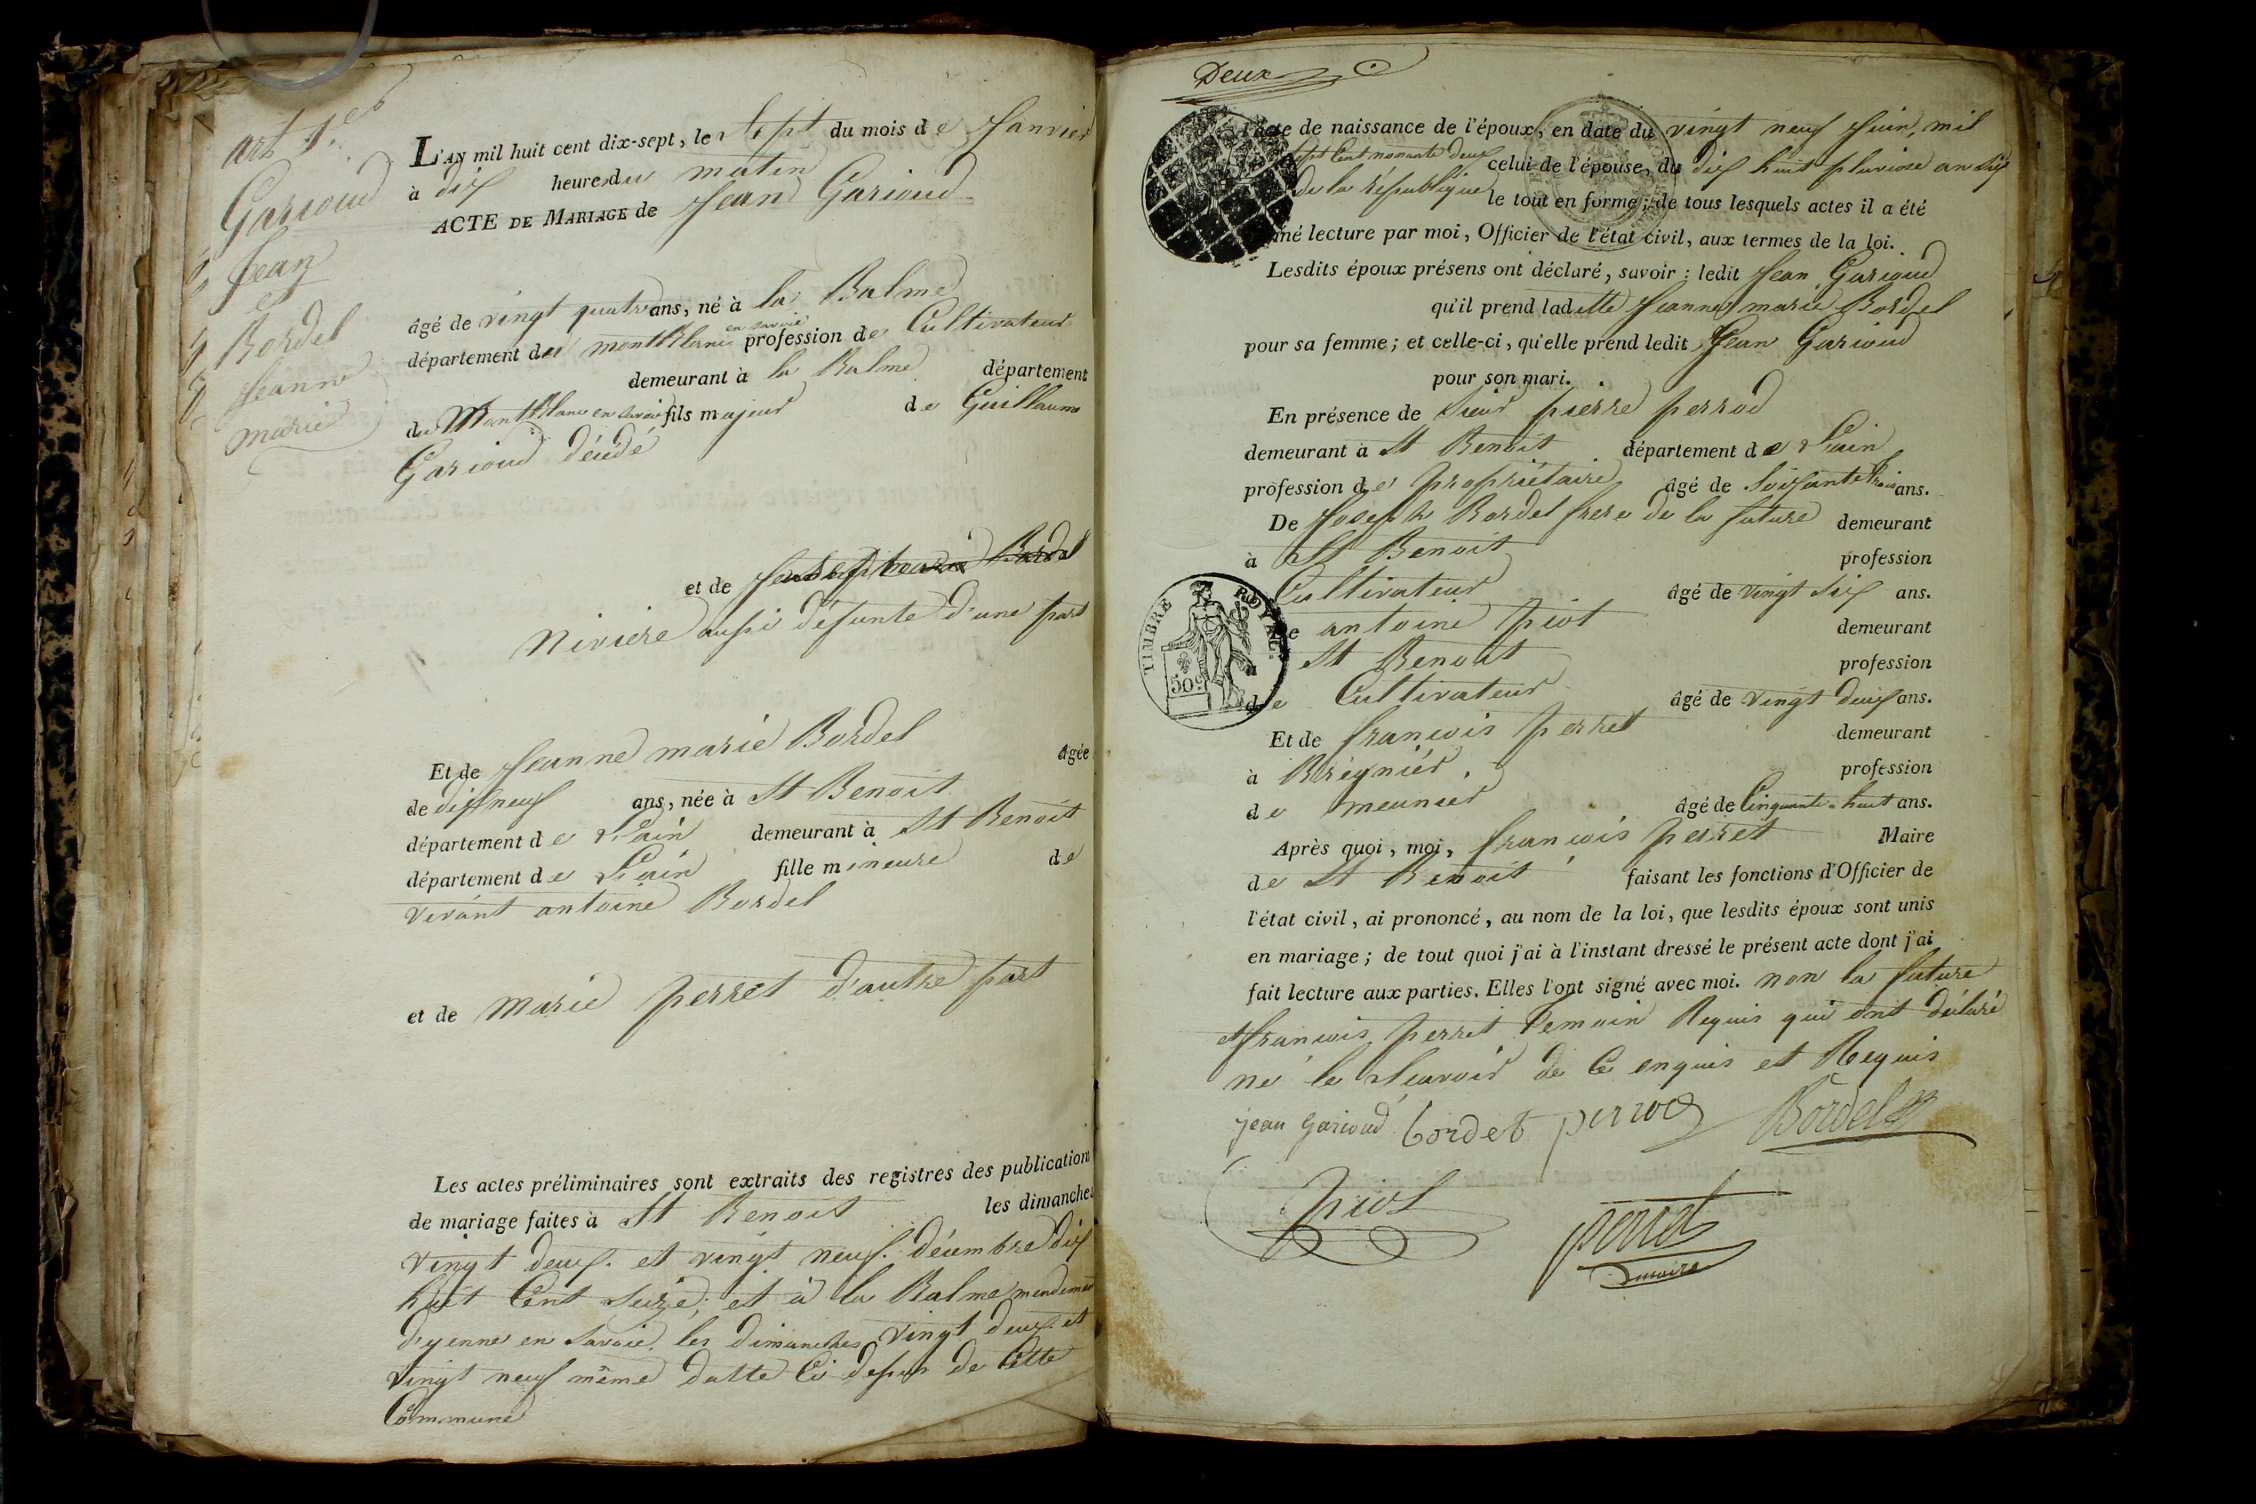 art 1er
Garioud
Jean
et
Bordel
Jeanne
marie
L'AN mil huit cent dix-sept, le Sept du mois de Janvier
à dix heures du matin
ACTE DE MARIAGE de Jean Garioud
âgé de vingt quatre ans, né à la Balme
en Savoie
département du montblanc profession de Cultivateur
demeurant à la Balme département
du Montblanc en Savoie fils majeur de Guillaume
Garioud décédé
et de Bordel
Niviere aussi défunte d'une part
Et de Jeanne marie Bordel âgée
de dix neuf ans, née à St Benoit
département de L'ain demeurant à St Benoit
département de L'ain fille mineure de
vivant antoine Bordel
et de Marie perret d'autre part
Les actes préliminaires sont extraits des registres des publications
de mariage faites à St Benoit les dimanches
vingt deux et vingt neuf décembre dix
huit Cent Seize; et à la Balme mendement
d'yenne en Savoie les dimanches vingt deux et
vingt neuf même datte Ci dessus de Cette
Commune
Deux
l'acte de naissance de l'époux, en date du vingt neuf Juin, mil
sept Cent nonante deux celui de l'épouse, du dix huit pluviose an Six
de la république le tout en forme; de tous lesquels actes il a été
né lecture par moi, Officier de l'état civil, aux termes de la loi.
Lesdits époux présens ont déclaré, savoir: ledit Jean Garioud
qu'il prend ladette Jeanne marie Bordel
pour sa femme; et celle-ci, qu'elle prend ledit Jean Garioud
pour son mari.
En présence de Sieur pierre perrod
demeurant à St Benoit département de L'ain
profession de propriétaire âgé de Soixante trois ans.
De Joseph Bordel frere de la future demeurant
à St Benoit profession
Cultivateur âgé de vingt Six ans.
De antoine piot demeurant
à St Benoit profession
de Cultivateur âgé de vingt deux ans.
TIMBRE ROYAL.
50c
Et de françois perret demeurant
à Brégnier profession
de meunier âgé de Cinquante huit ans.
Après quoi, moi, françois perret Maire
de St Benoit faisant les fonctions d'Officier de
l'état civil, ai prononcé, au nom de la loi, que lesdits époux sont unis
en mariage; de tout quoi j'ai à l'instant dressé le présent acte dont j'ai
fait lecture aux parties. Elles l'ont signé avec moi. non la future
et françois perret temoin Requis qui ont déclaré
ne le Scavoir de Ce enquis et Requis
jean garioud bordet perrod Bordel
piot
perret
maire